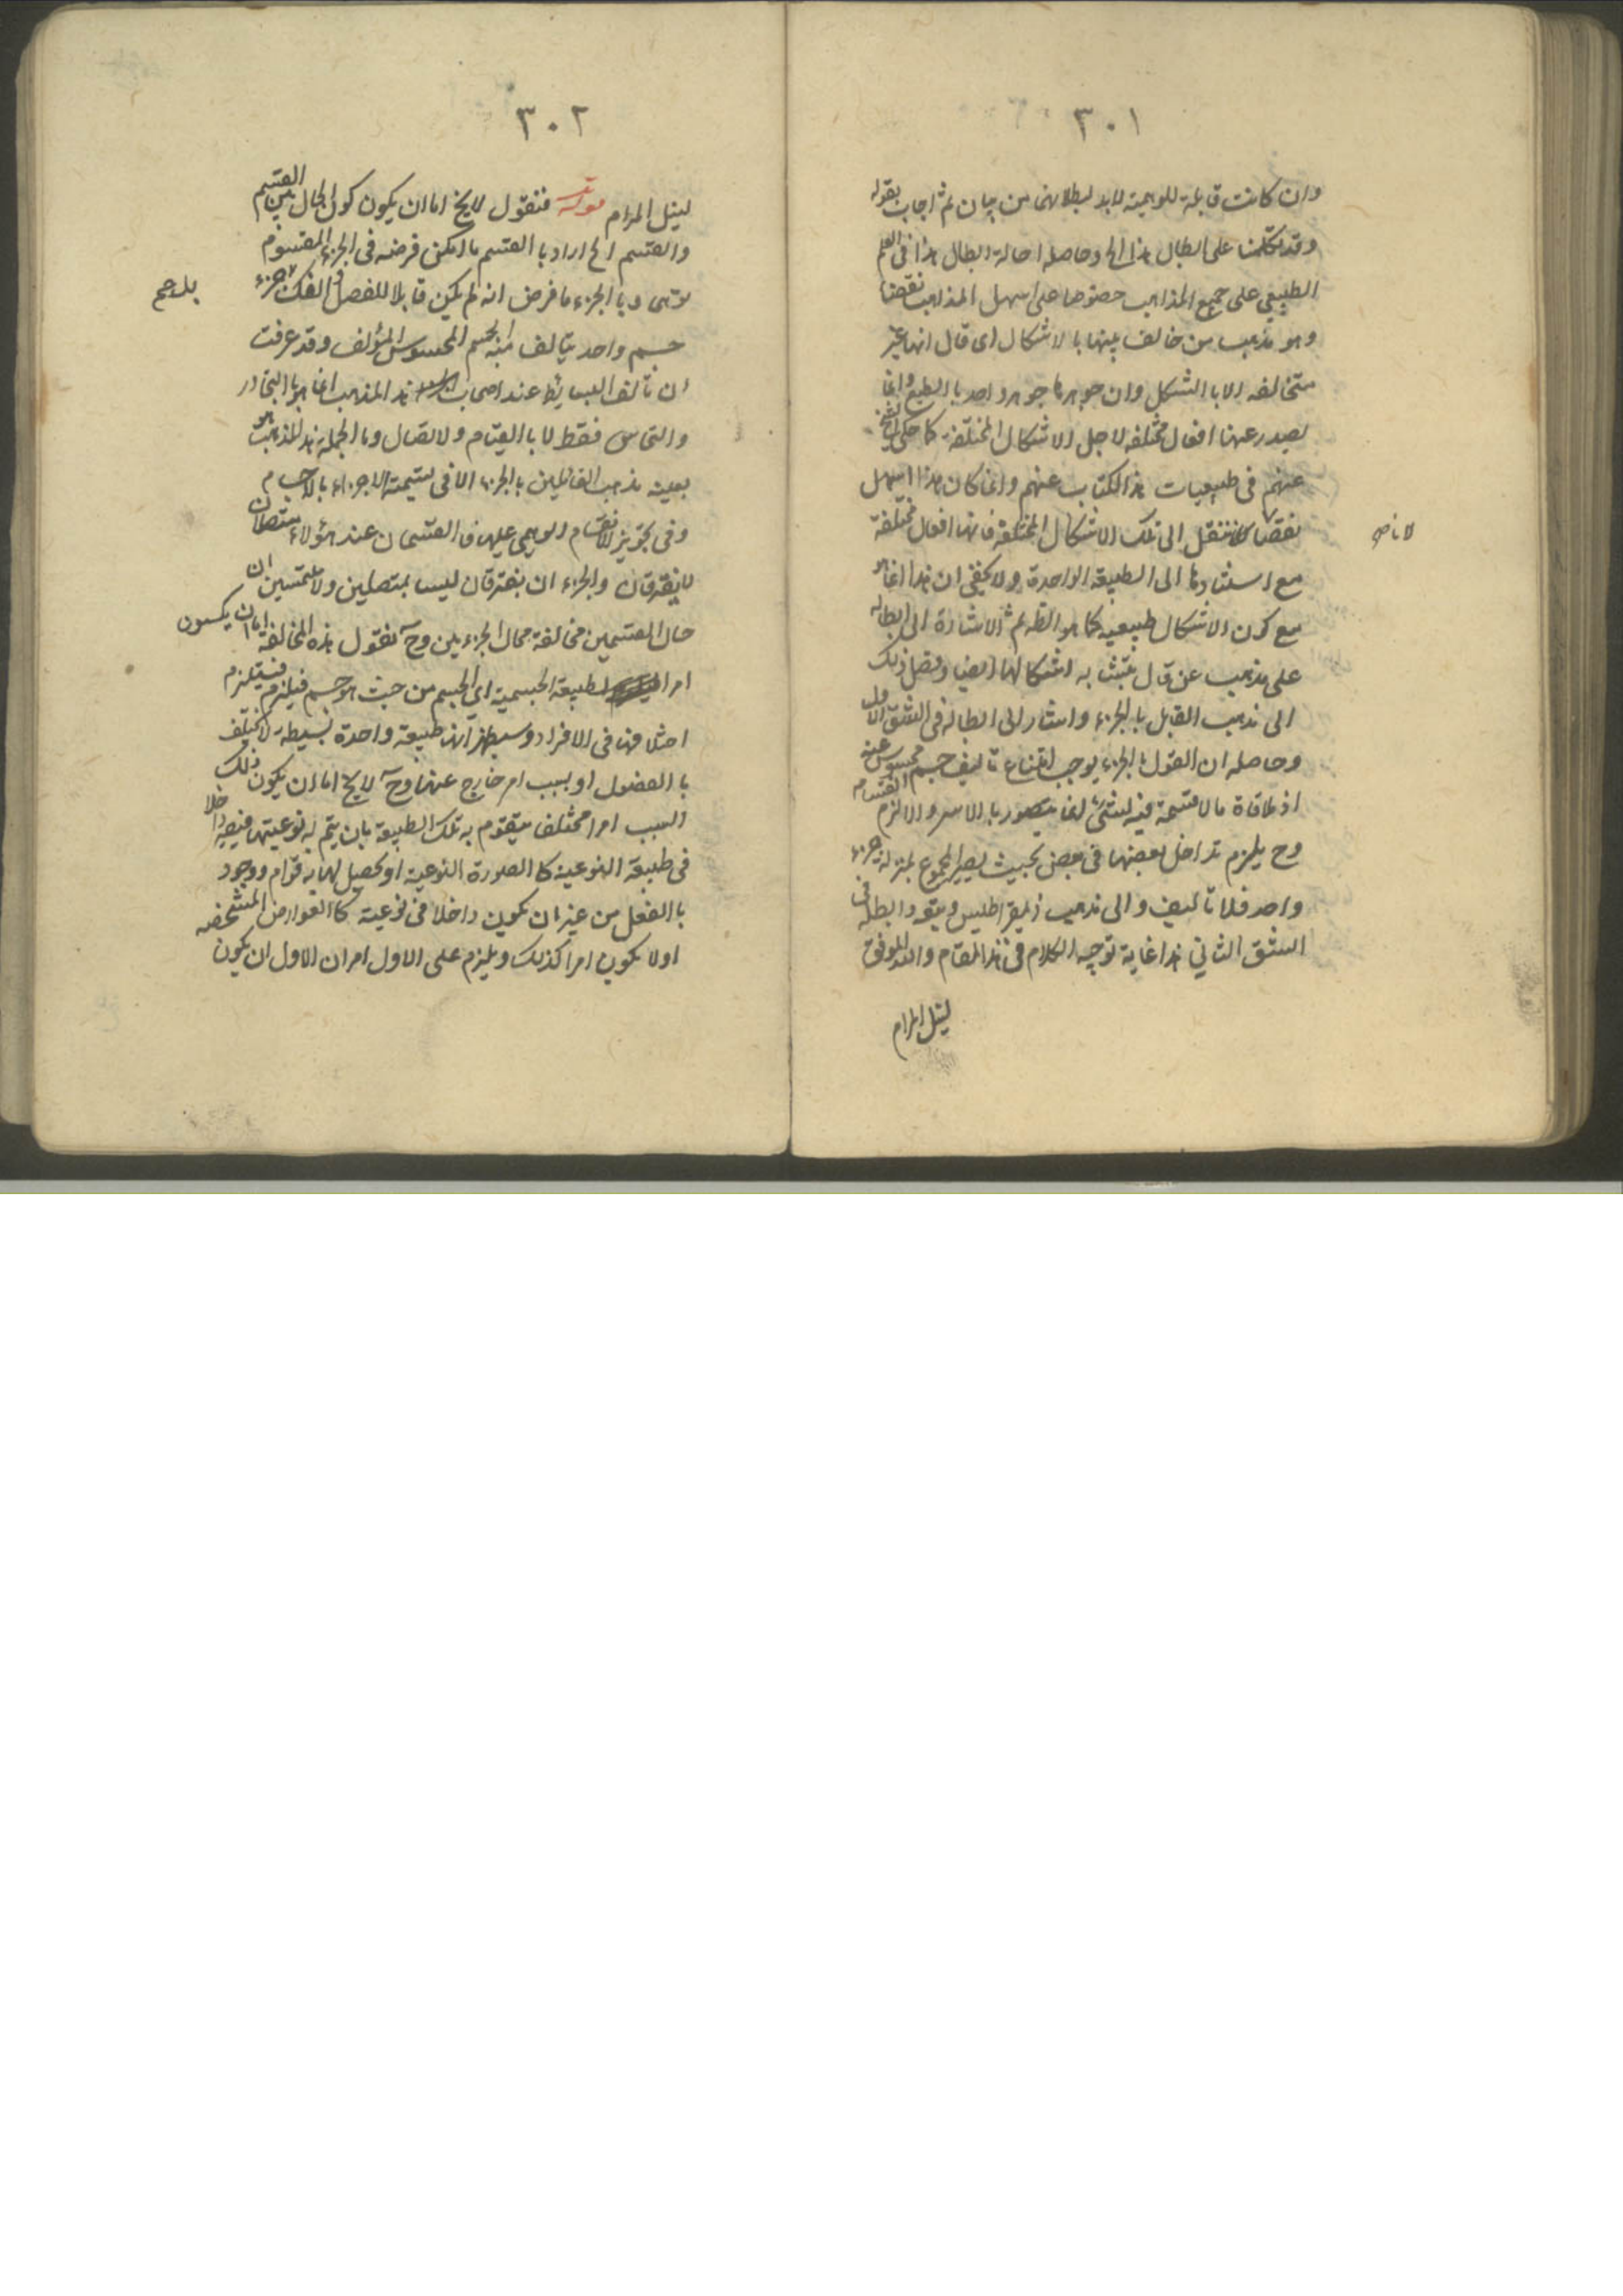 ٣٠١
وان كانت قابلة للوهمية لابد لبطلانها من بيان ثم اجاب بقوله
وقد تكلمنا على ابطال هذا الخ وحاصله احالة ابطال هذا فى العلم
الطبيعي على جميع المذاهب خصوصا على اسهل المذاهب نقضا
وهو مذهب من خالف بينها بالاشكال اى قال انها غير
متخالفه الا بالشكل وان جوهرها جوهر واحد بالطبع وانما
يصدر عنها افعال مختلفه لاجل الاشكال المختلفة كما حكى الشيخ
عنهم فى طبيعيات هذا الكتاب عنهم وانما كان هذا اسهل
نقضا لا ننقل الى تلك الاشكال المختلفة فانها افعال مختلفة
لا ناصر
مع استنادها الى الطبيعة الواحدة ولا يخفى ان هذا انما هو
مع كون الاشكال طبيعيه كما هو الظ ثم الاشارة الى ابطاله
على مذهب عن قال يتشبث به اشكالها ايضا وفصل ذلك
الى مذهب القايل بالجزء واشار الى ابطاله فى الشق الاول
وحاصله ان القول بالجزء يوجب امتناع تاليف جسم محسوس عنه
اذ ملاقاة ما لا قسمة فيه لشئ انما يتصور بالاسر والا لزم انقسامه
وح يلزم تداخل بعضها فى بعض بحيث يصير المجموع بمنزلة جزء
واحد فلا تاليف والى مذهب ذيمقراطليس ويتوه وابطله فى
الشق الثانى هذا غاية توجيه الكلام فى هذا المقام والله الموفق
لنيل المرام
٣٠٢
لنيل المرام قوله فنقول لايخ اما ان يكون كون الحال بين القسم
والقسم الخ اراد بالقسم ما امكن فرضه فى الجزء المقسوم
وهمى وبالجزء ما فرض انه لم يكن قابلا للفصل والفك جزء
بل صح
جسم واحد يتالف منه الجسم المحسوس المؤلف وقد عرفت
ان تالف البسائط عند اصحاب هذا المذهب انما هو بالتجاور
والتماس فقط لا بالقيام ولاتصال وبالجملة هذا المذهب هو
بعينه مذهب القائلين بالجزء الا فى تسمية الاجزاء بالاجسام
وفى تجويز الانقسام الوهمى عليها فالقسمان عند هؤلاء متصلان
لا يفترقان والجزء ان يفترقان ليسا بمتصلين ولا ملتمسين ان
حال القسمين مخالفة محال الجزءين وح نقول هذه المخالفة اما ان يكون
امرا لطبيعة الجسمية اى الجسم من حيث هو جسم فيلزم فيلزم
اختلافها فى الافراد وسيظهر انها طبيعة واحدة بسيطة لا تختلف
بالفصول او بسبب امر خارج عنها وح لايخ اما ان يكون ذلك
السبب امرا مختلف يتقوم به تلك الطبيعة بان يتم له نوعيتها فيصير داخلا
فى طبيعة النوعية كالصورة النوعية او يحصل لها به قوام ووجود
بالفعل من غير ان يكون داخلا فى نوعية كالعوارض المشخصه
اولا يكون امرا كذلك ويلزم على الاول امران الاول ان يكون